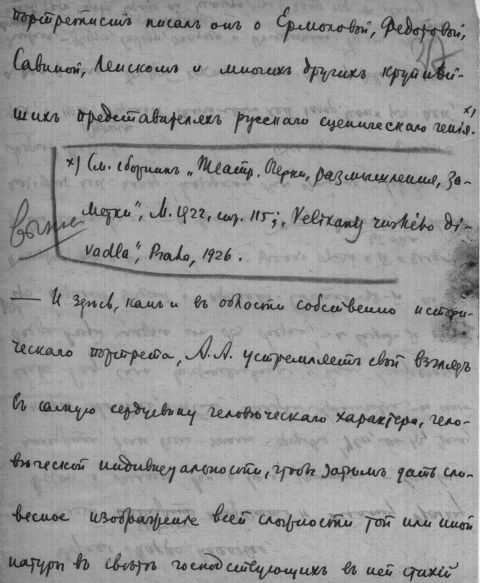 портретистъ писалъ онъ о Ермоловой, Федотовой,
Савиной, Ленскомъ и многихъ другихъ крупнѣй-
шихъ представителяхъ русскаго сценическаго генія. x)
x) См. сборникъ „Театр. Очерки, размышления, за-
мѣтки“, М. 1922, стр. 115; „Velikany ruského di-
vadla“, Praha, 1926.
выше
— И здѣсь, какъ и въ области собственно истори-
ческаго портрета, А.А. устремляетъ свой взглядъ
въ самую сердцевину человѣческаго характера, чело-
вѣческой индивидуальности, чтобъ затѣмъ дать сло-
весное изображеніе всей сложности той или иной
натуры въ свѣтѣ господствующихъ въ ней стихій